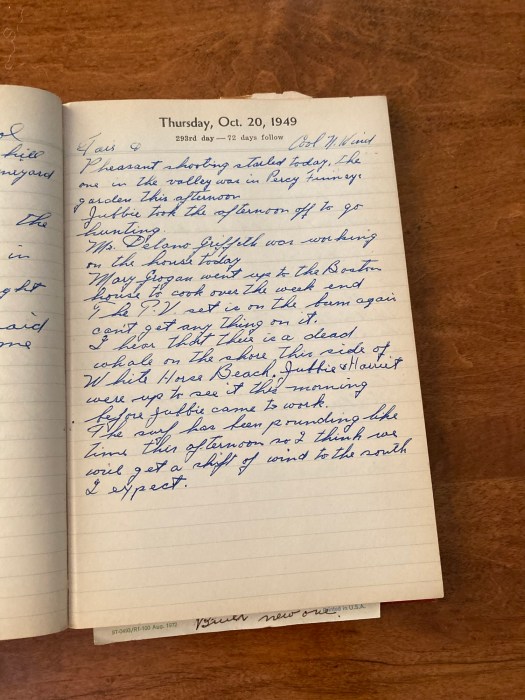 ol
hill
neyard
the
in
ght
aid
me
Thursday, Oct. 20, 1949
293rd day — 72 days follow
Fair & Cool N. Wind
Pheasant shooting stated today, the
one in the valley was in Percy Finneys
garden this afternoon
Jubbie took the afternoon off to go
hunting.
Mr. Delano Griffeth was working
on the house today
Mary Grogan went up to the Boston
house to cook over the week end
The T.V. set is on the bum again
can't get any thing on it.
I hear that there is a dead
whale on the shore this side of
White Horse Beach. Jubbie & Harriet
were up to see it this morning
before Jubbie came to work.
The surf has been pounding like
time this afternoon so I think we
will get a shift of wind to the south
I expect.
new one.
in U.S.A.